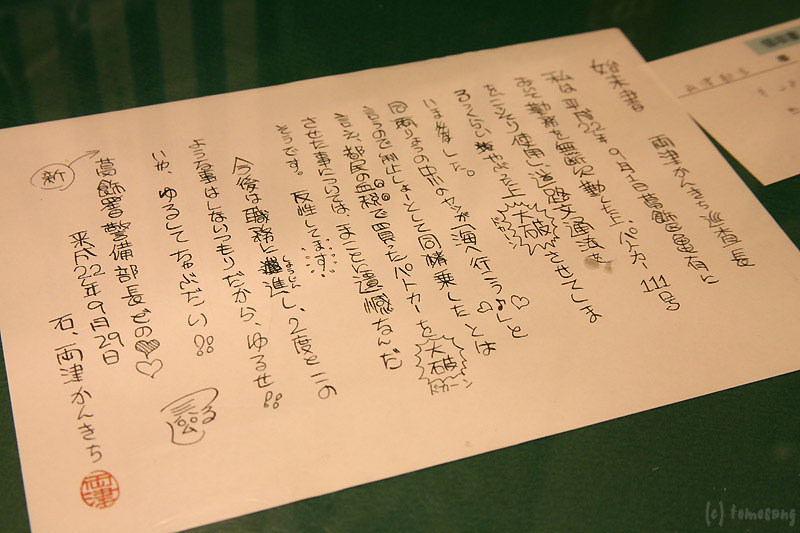 始末書 両津かんきち巡査長
私は平成22年9月1日葛飾区亀有に
おいて勤務を無断欠勤した上、パトカー111号
をこっそり使用し道路交通法を
るくらい やった上 大破 させてしま
いました。
中川のヤツが「海へ行こうよ」♡♡と
言うので制止しよーとして同乗したとは
言え、都民の血税で買ったパトカーを大破
させた事については、まことに遺憾なんだ
そうです。反性してます。
今後は職務に進し、2度とこの
しょうじん
ような事はしないつもりだから、ゆるせ!!
いや、ゆるしてちゃぶだい!!
新
葛飾署警備部長どの♥♡
平成22年9月29日
石、両津かんきち
両津
(c) tomosang